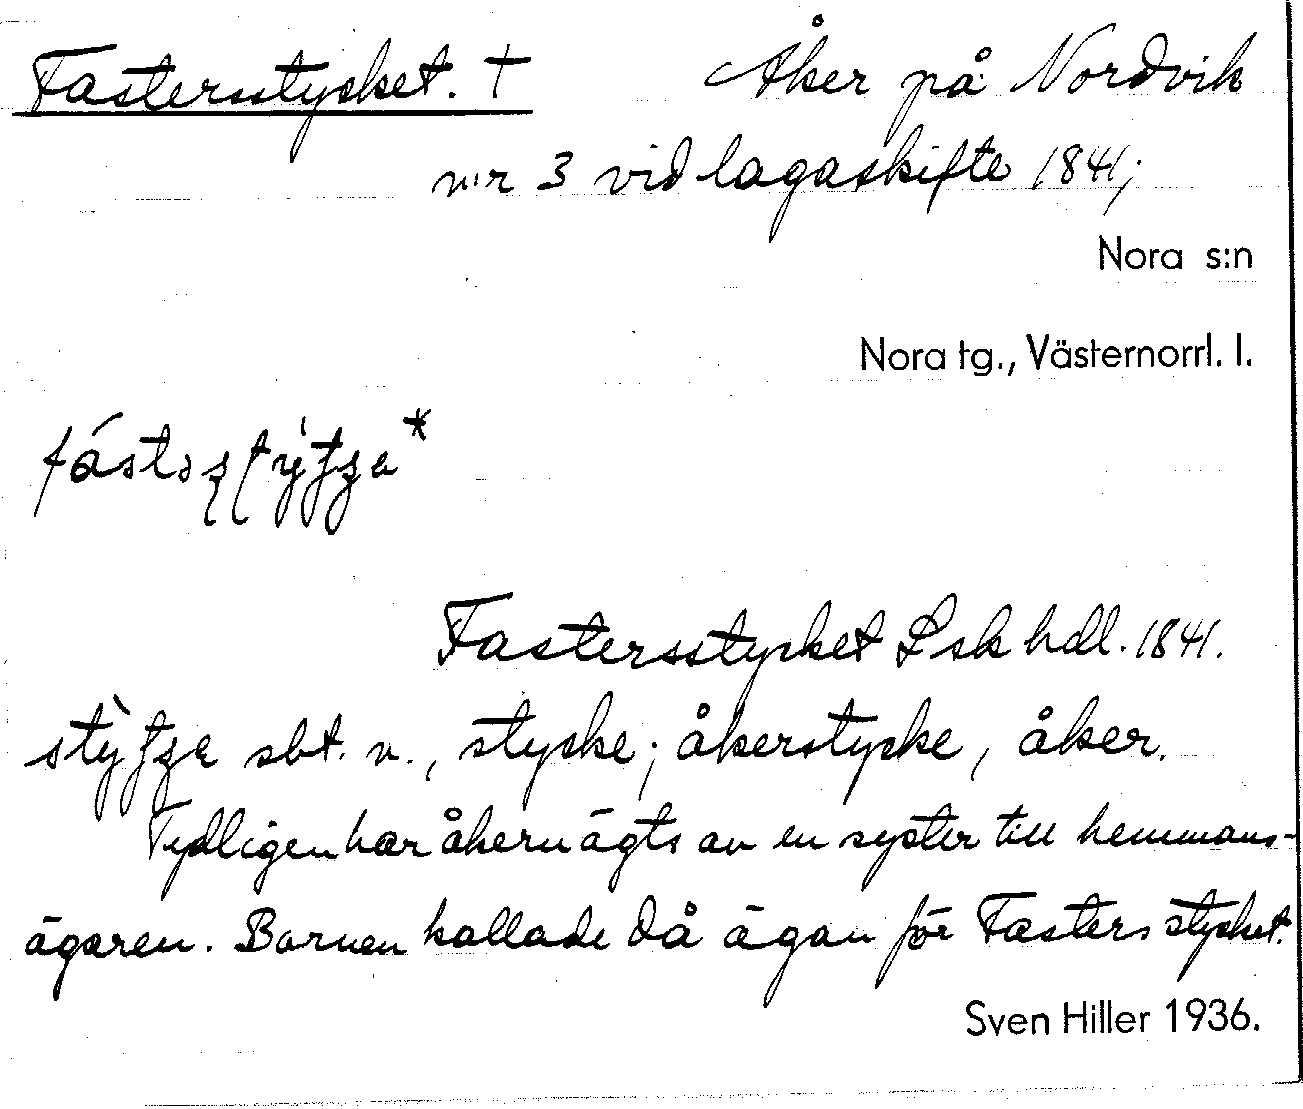 Fastersstycket. † Åker på Nordvik
n:r 3 vid lagaskifte 1841;
Nora s:n
Nora tg., Västernorrl. l.
Fastersstycket Lsk hdl. 1841.
sbt. n., stycke; åkerstycke, åker.
Tydligen har åkern ägts av en syster till hemmans-
ägaren. Barnen kallade då ägan för Fasters stycket.
Sven Hiller 1936.